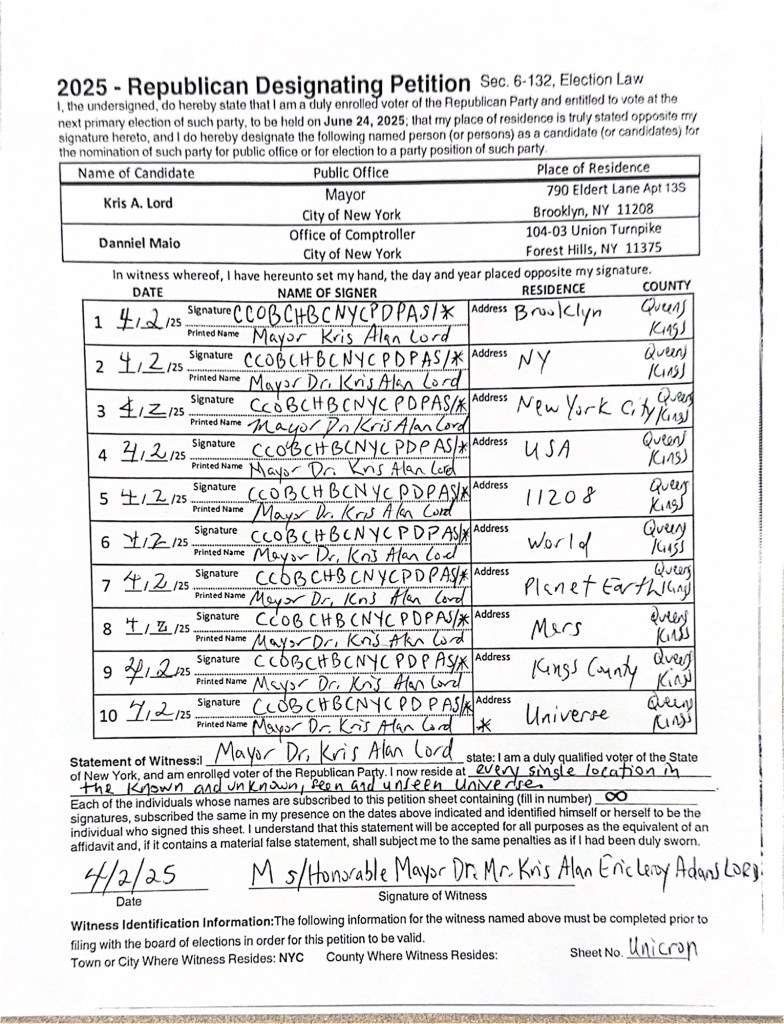 2025 - Republican Designating Petition Sec. 6-132, Election Law
I, the undersigned, do hereby state that I am a duly enrolled voter of the Republican Party and entitled to vote at the
next primary election of such party, to be held on June 24, 2025; that my place of residence is truly stated opposite my
signature hereto, and I do hereby designate the following named person (or persons) as a candidate (or candidates) for
the nomination of such party for public office or for election to a party position of such party.
Name of Candidate Public Office Place of Residence
Kris A. Lord Mayor 790 Eldert Lane Apt 13S
City of New York Brooklyn, NY 11208
Danniel Maio Office of Comptroller 104-03 Union Turnpike
City of New York Forest Hills, NY 11375
In witness whereof, I have hereunto set my hand, the day and year placed opposite my signature.
DATE NAME OF SIGNER RESIDENCE COUNTY
1 4/2/25 Signature CCOBCHBCNYCPDPAS/* Address Brooklyn Queens
Printed Name Mayor Kris Alan Lord Kings
2 4/2/25 Signature CCOBCHBCNYCPDPAS/* Address NY Queens
Printed Name Mayor Dr. Kris Alan Lord Kings
3 4/2/25 Signature CCOBCHBCNYCPDPAS/* Address New York City Queens
Printed Name Mayor Dr. Kris Alan Lord Kings
4 4/2/25 Signature CCOBCHBCNYCPDPAS/* Address USA Queens
Printed Name Mayor Dr. Kris Alan Lord Kings
5 4/2/25 Signature CCOBCHBCNYCPDPAS/* Address 11208 Queens
Printed Name Mayor Dr. Kris Alan Lord Kings
6 4/2/25 Signature CCOBCHBCNYCPDPAS/* Address World Queens
Printed Name Mayor Dr. Kris Alan Lord Kings
7 4/2/25 Signature CCOBCHBCNYCPDPAS/* Address Planet Earth Queens
Printed Name Mayor Dr. Kris Alan Lord Kings
8 4/2/25 Signature CCOBCHBCNYCPDPAS/* Address Mars Queens
Printed Name Mayor Dr. Kris Alan Lord Kings
9 4/2/25 Signature CCOBCHBCNYCPDPAS/* Address Kings County Queens
Printed Name Mayor Dr. Kris Alan Lord Kings
10 4/2/25 Signature CCOBCHBCNYCPDPAS/* Address Universe Queens
Printed Name Mayor Dr. Kris Alan Lord * Kings
Statement of Witness:I Mayor Dr. Kris Alan Lord state: I am a duly qualified voter of the State
of New York, and am enrolled voter of the Republican Party. I now reside at every single location in
the known and unknown, seen and unseen Universe.
Each of the individuals whose names are subscribed to this petition sheet containing (fill in number) ∞
signatures, subscribed the same in my presence on the dates above indicated and identified himself or herself to be the
individual who signed this sheet. I understand that this statement will be accepted for all purposes as the equivalent of an
affidavit and, if it contains a material false statement, shall subject me to the same penalties as if I had been duly sworn.
4/2/25 M s/Honorable Mayor Dr. Mr. Kris Alan Eric Leroy Adams Lord.
Date Signature of Witness
Witness Identification Information:The following information for the witness named above must be completed prior to
filing with the board of elections in order for this petition to be valid.
Town or City Where Witness Resides: NYC County Where Witness Resides: Sheet No. Unicron